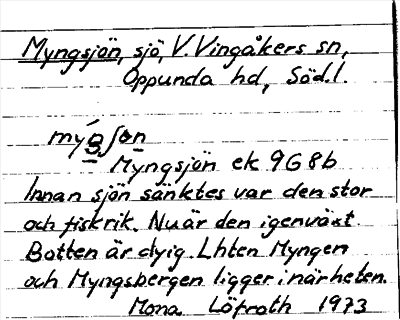 Myngsjön, sjö, V. Vingåkers sn,
Oppunda hd, Söd.l.
Myngsjön ek 9G8b
Innan sjön sänktes var den stor
och fiskrik. Nu är den igenväxt.
Botten är dyig. Lhten Myngen
och Myngsbergen ligger i närheten.
Mona Löfroth 1973